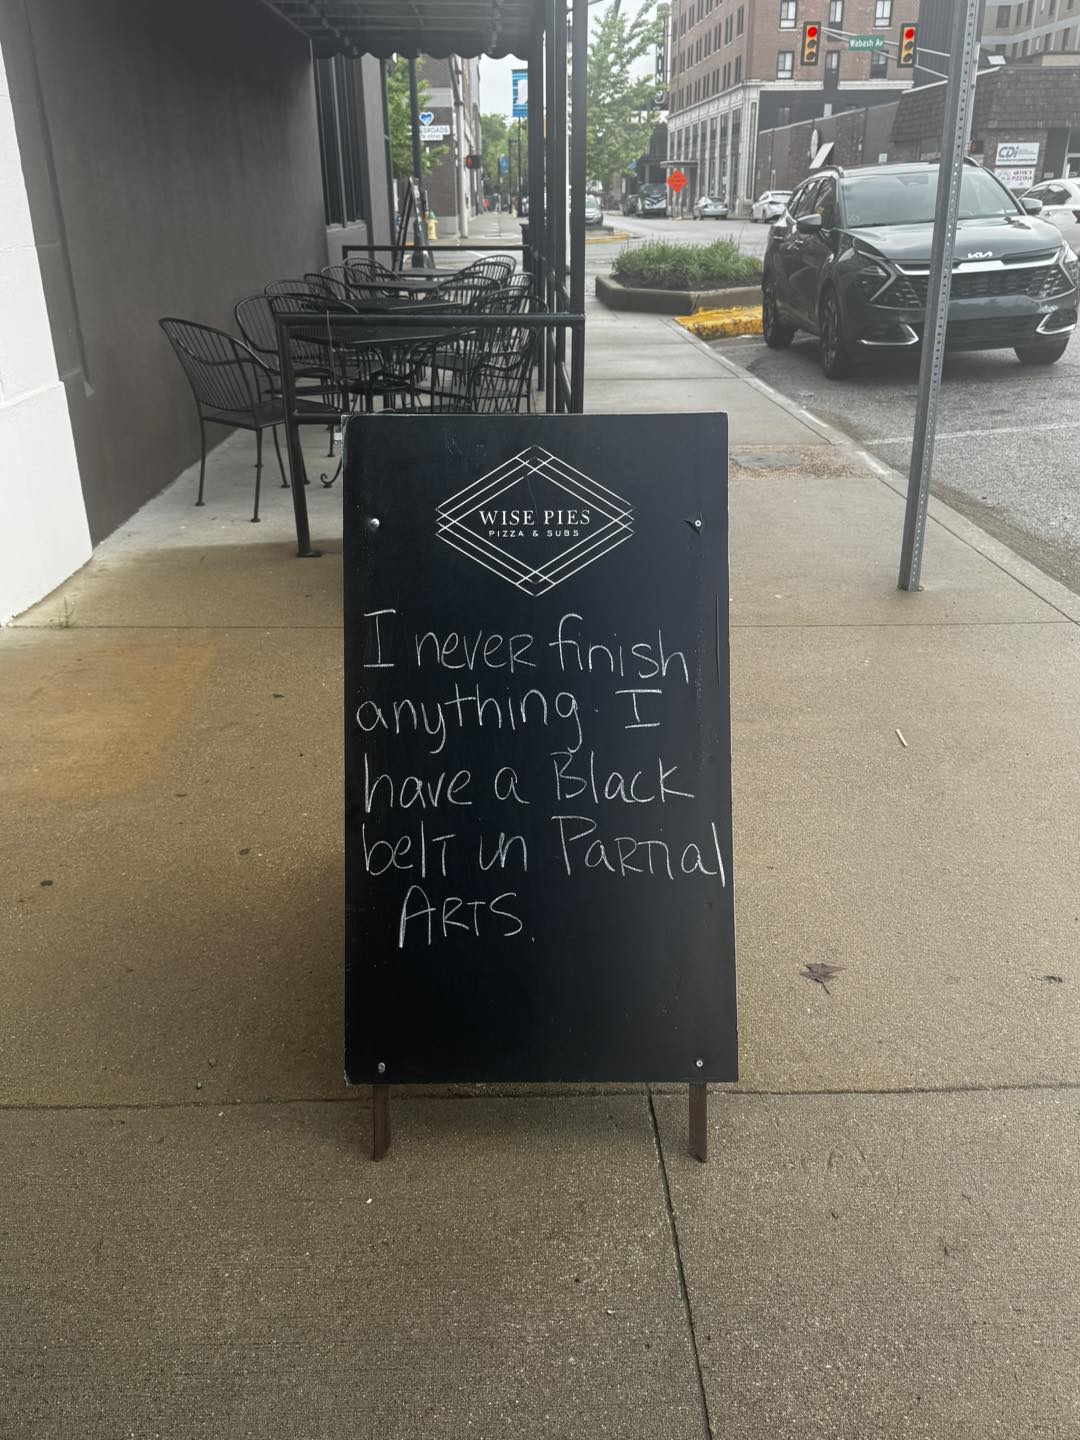 Wabash Av
CDi
KIA
WISE PIES
PIZZA & SUBS
I never finish
anything. I
have a Black
belt in Partial
Arts.